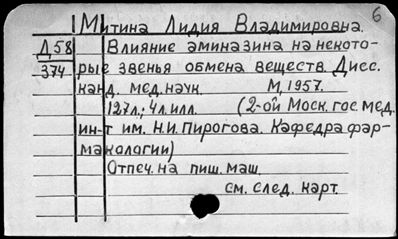 6
Митина Лидия Владимировна.
Д58 Влияние аминазина на некото-
374 рые звенья обмена веществ. Дисс.
канд. мед. наук. М, 1957.
127л.; 4л. илл. (2-ой Моск. гос. мед.
ин-т им. Н.И. Пирогова. Кафедра фар-
макологии)
Отпеч. на пиш. маш.
см. след. карт.